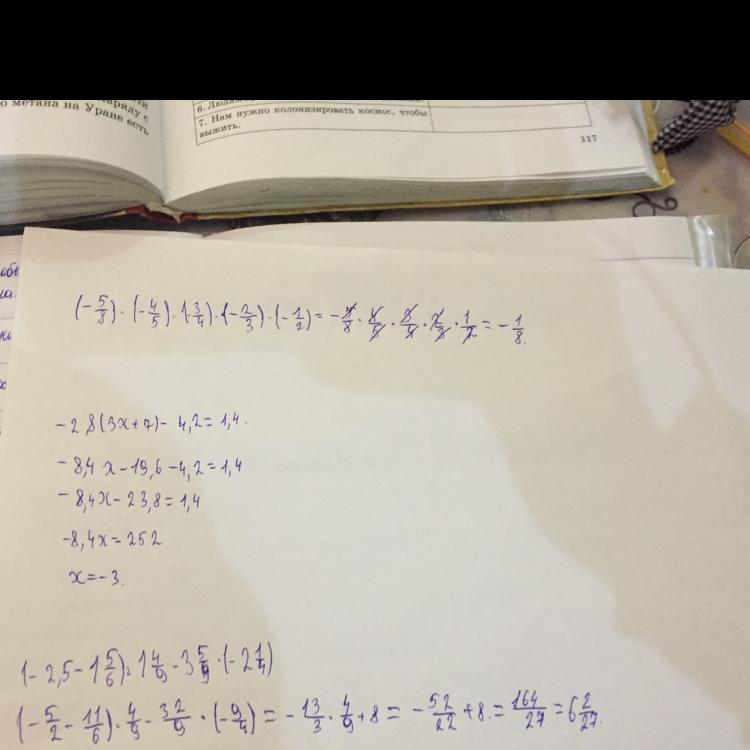 о метана на Уране есть
6. Люди
7. Нам нужно колонизировать космос, чтобы
выжить.
117
(-5/8)·(-4/5)·(-3/4)·(-2/3)·(-1/2)=-5/8·4/5·3/4·2/3·1/2=-1/8.
-2,8(3x+7)-4,2=1,4.
-8,4x-19,6-4,2=1,4
-8,4x-23,8=1,4
-8,4x=252
x=-3.
(-2,5-1 5/6):1 4/9-3 5/9·(-2 1/4)
(-5/2-11/6)·4/9-32/9·(-9/4)=-13/3·4/9+8=-52/22+8=164/27=6 2/27.